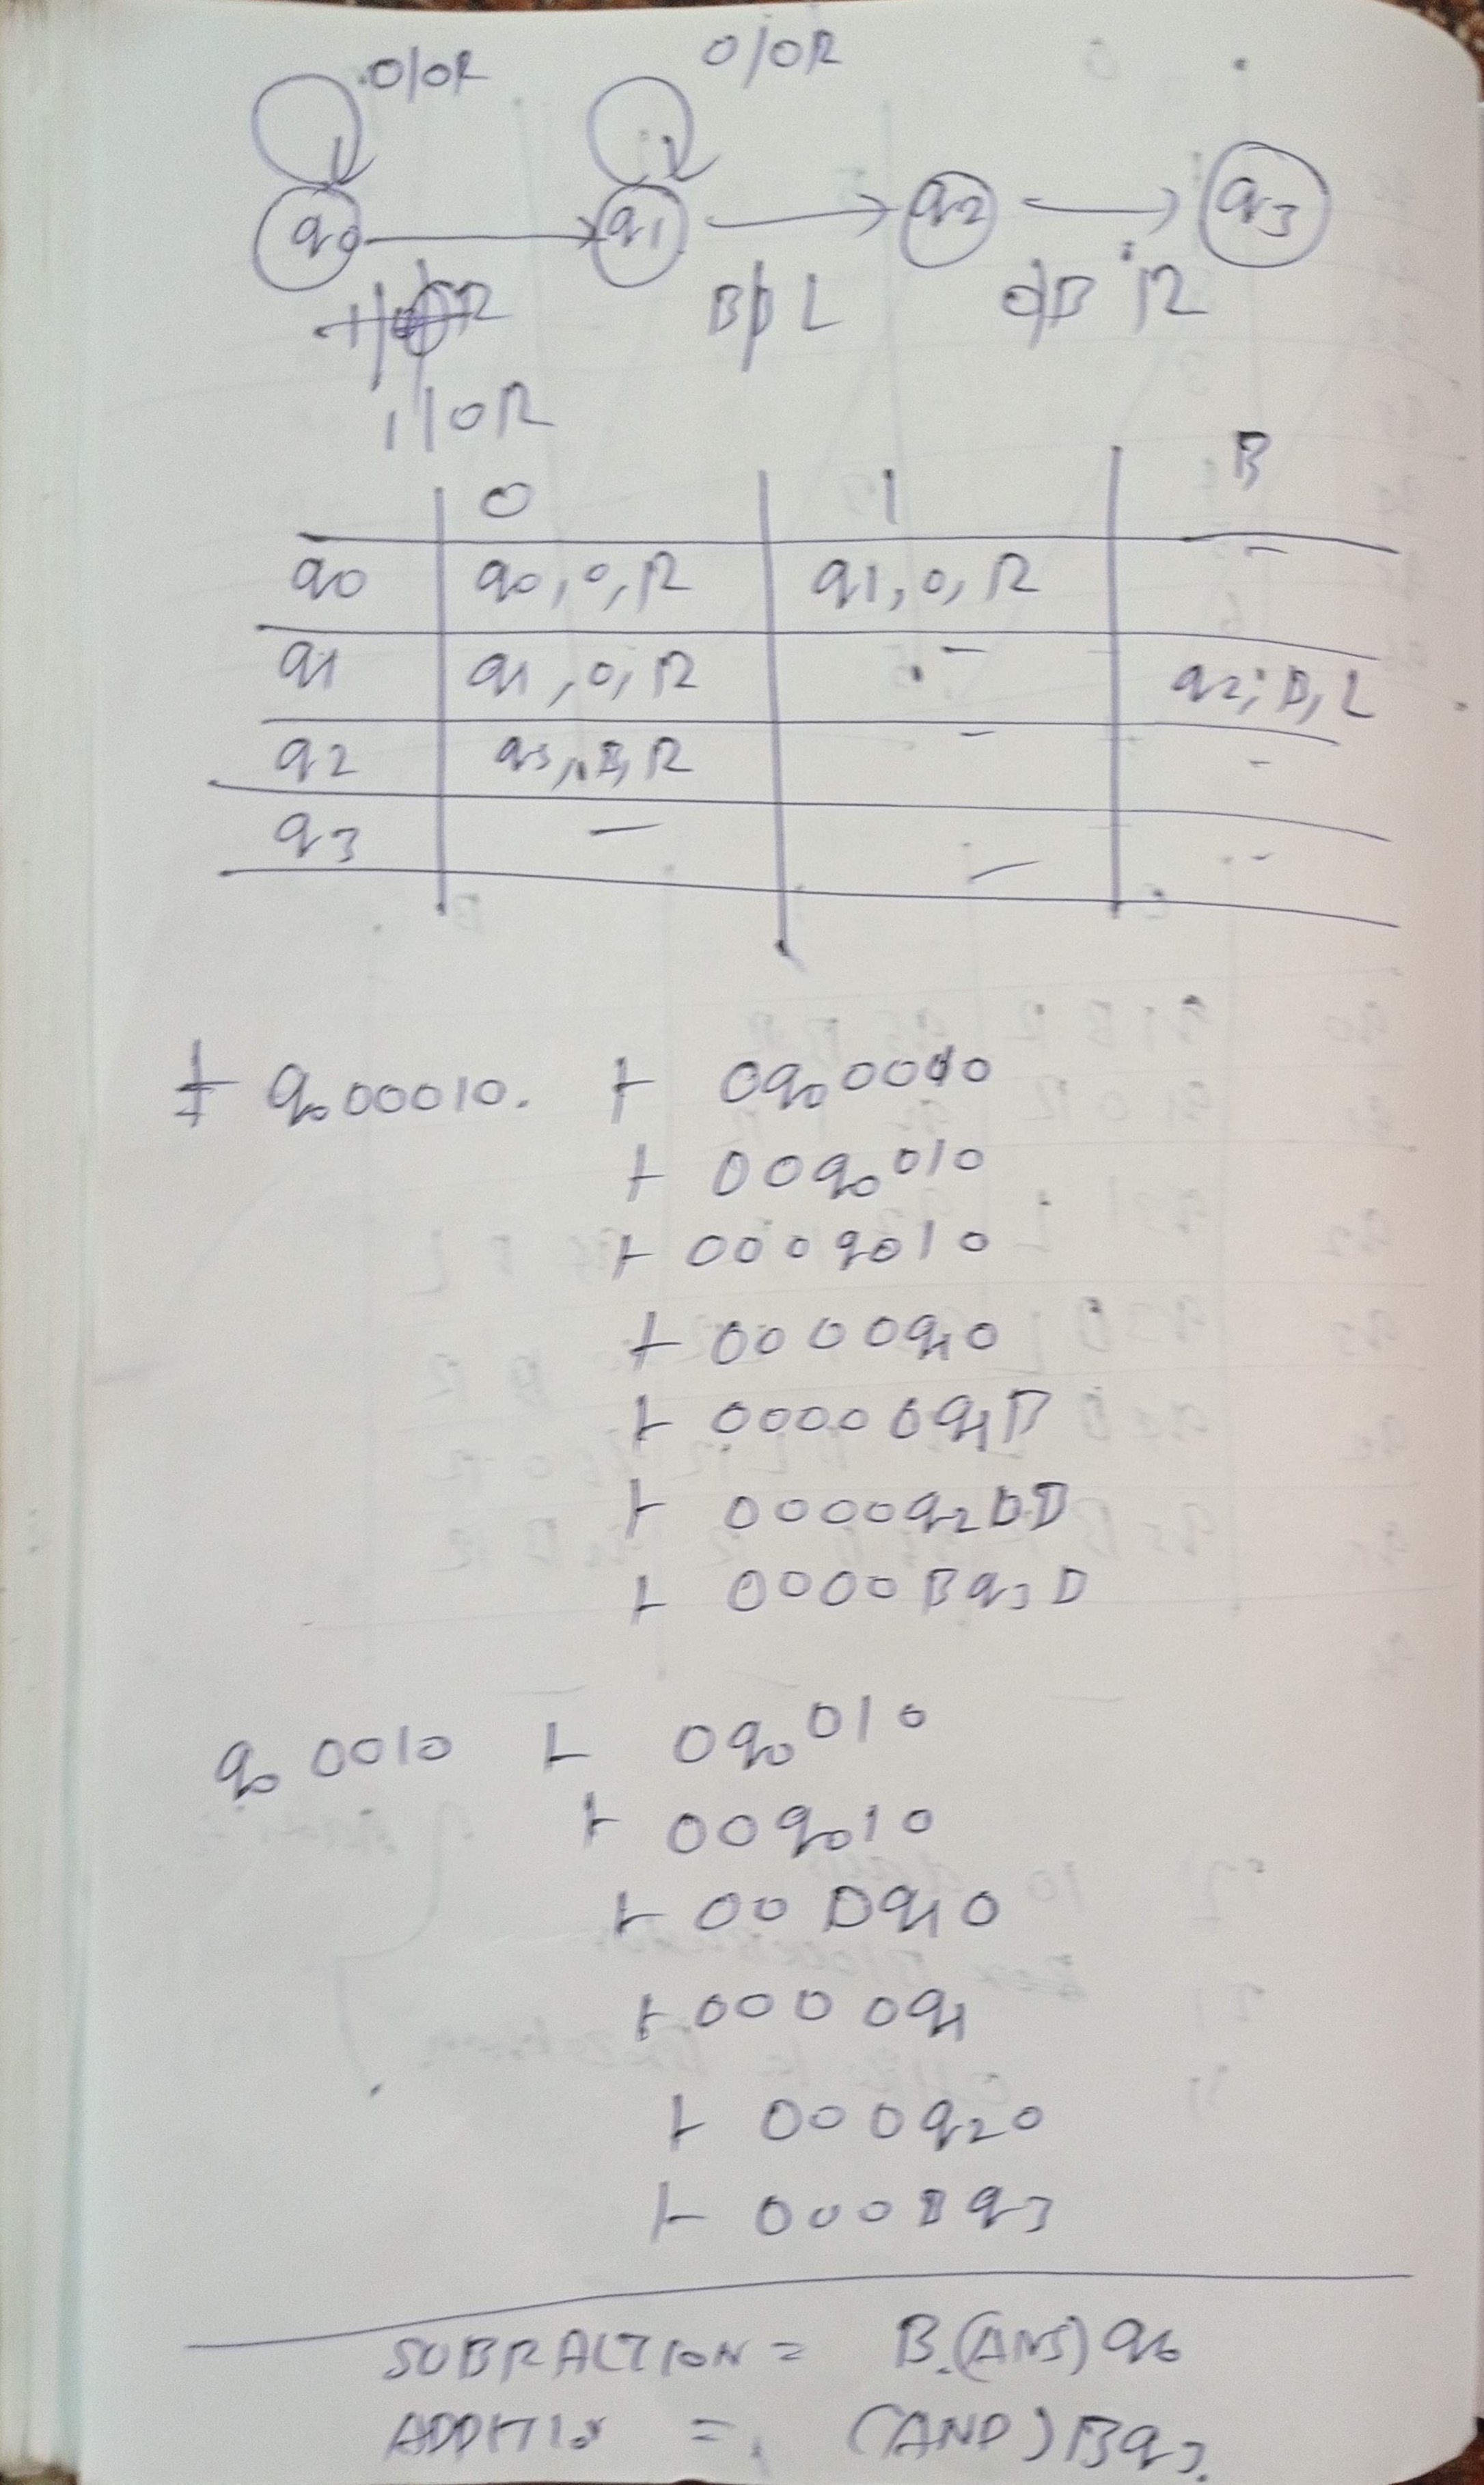 0/0R 0/0R
q0 q1 q2 q3
B/B L 0/B R
1/0R
0 1 B
q0 q0,0,R q1,0,R -
q1 q1,0,R - q2,B,L
q2 q3,B,R - -
q3 - - -
q0 00010. ⊢ 0q0 0010
⊢ 00q0 010
⊢ 000q010
⊢ 0000q10
⊢ 00000q1B
⊢ 0000q20B
⊢ 0000Bq3B
q0 0010 ⊢ 0q0 010
⊢ 00q010
⊢ 000q10
⊢ 0000q1
⊢ 000q20
⊢ 000Bq3
SUBRACTION = B.(ANS)q6
= (AND)Bq3.